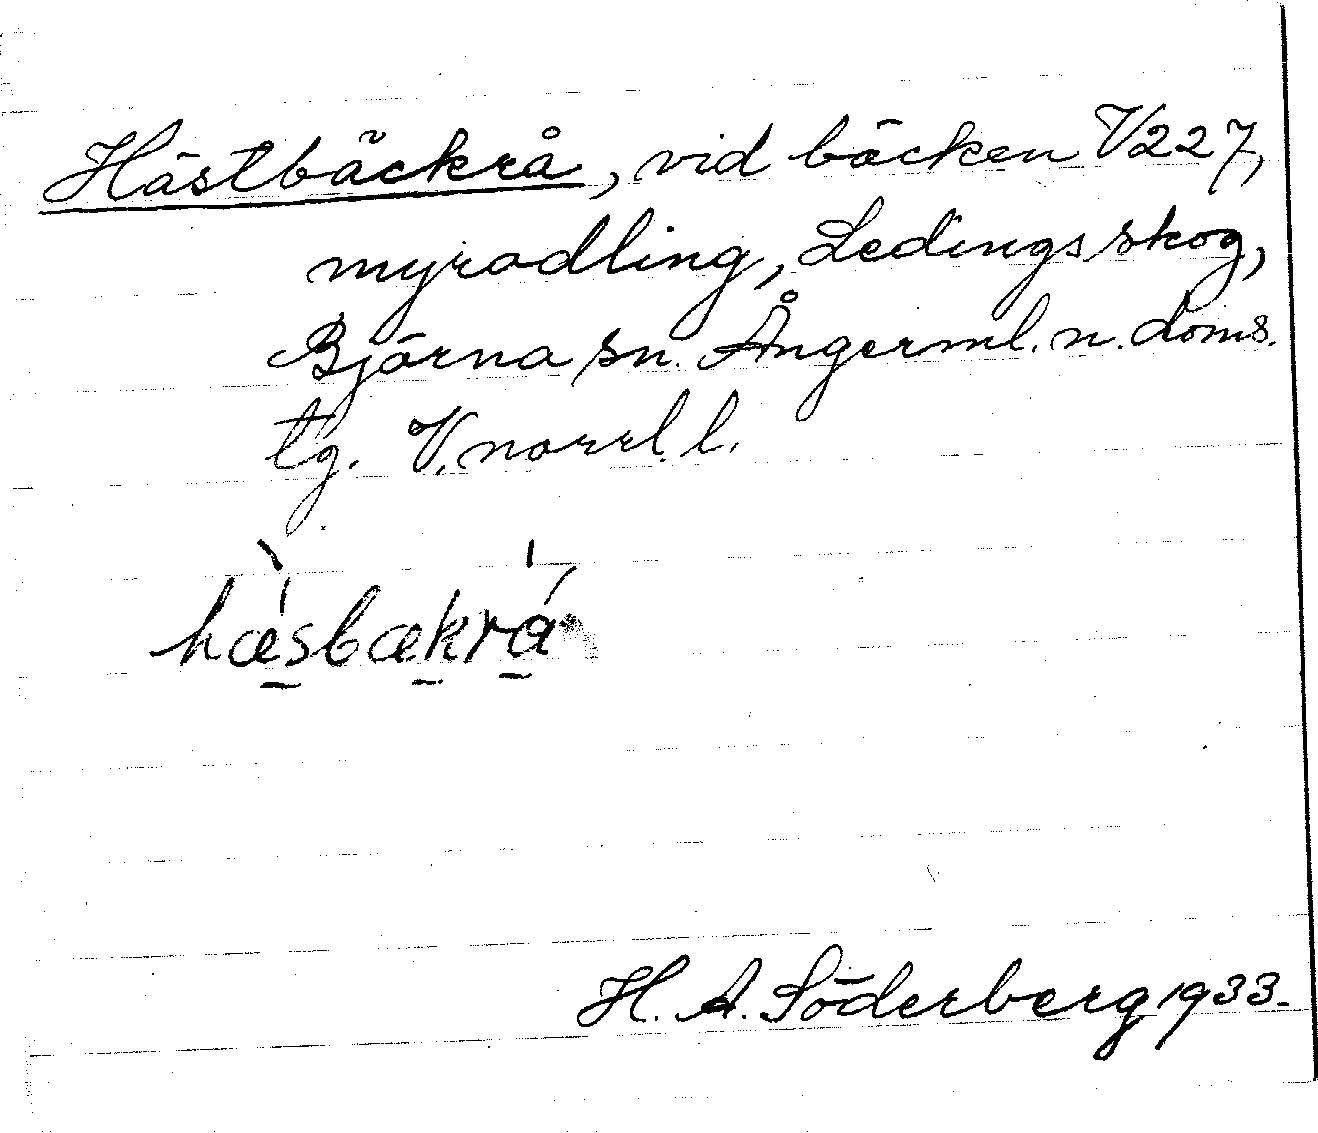 Hästbäckrå, vid bäcken V227,
myrodling, Ledingsskog,
Björna sn. Ångerml. n. doms.
tg. V. norrl. l.
hæ̀sbækrá
H. A. Söderberg 1933.